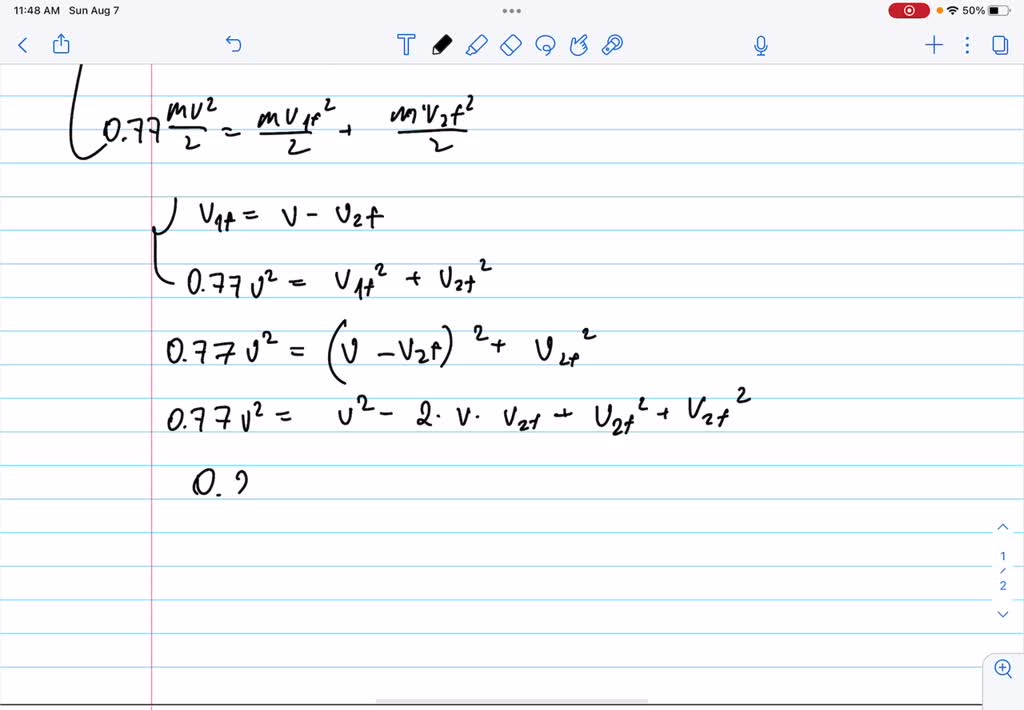 11:48 AM Sun Aug 7
50%
0.77 mv²/2 = mv₁f²/2 + mv₂f²/2
v₁f = v - v₂f
0.77 v² = v₁f² + v₂f²
0.77 v² = (v - v₂f)² + v₂f²
0.77 v² = v² - 2 · v · v₂f + v₂f² + v₂f²
0.2
1
/
2